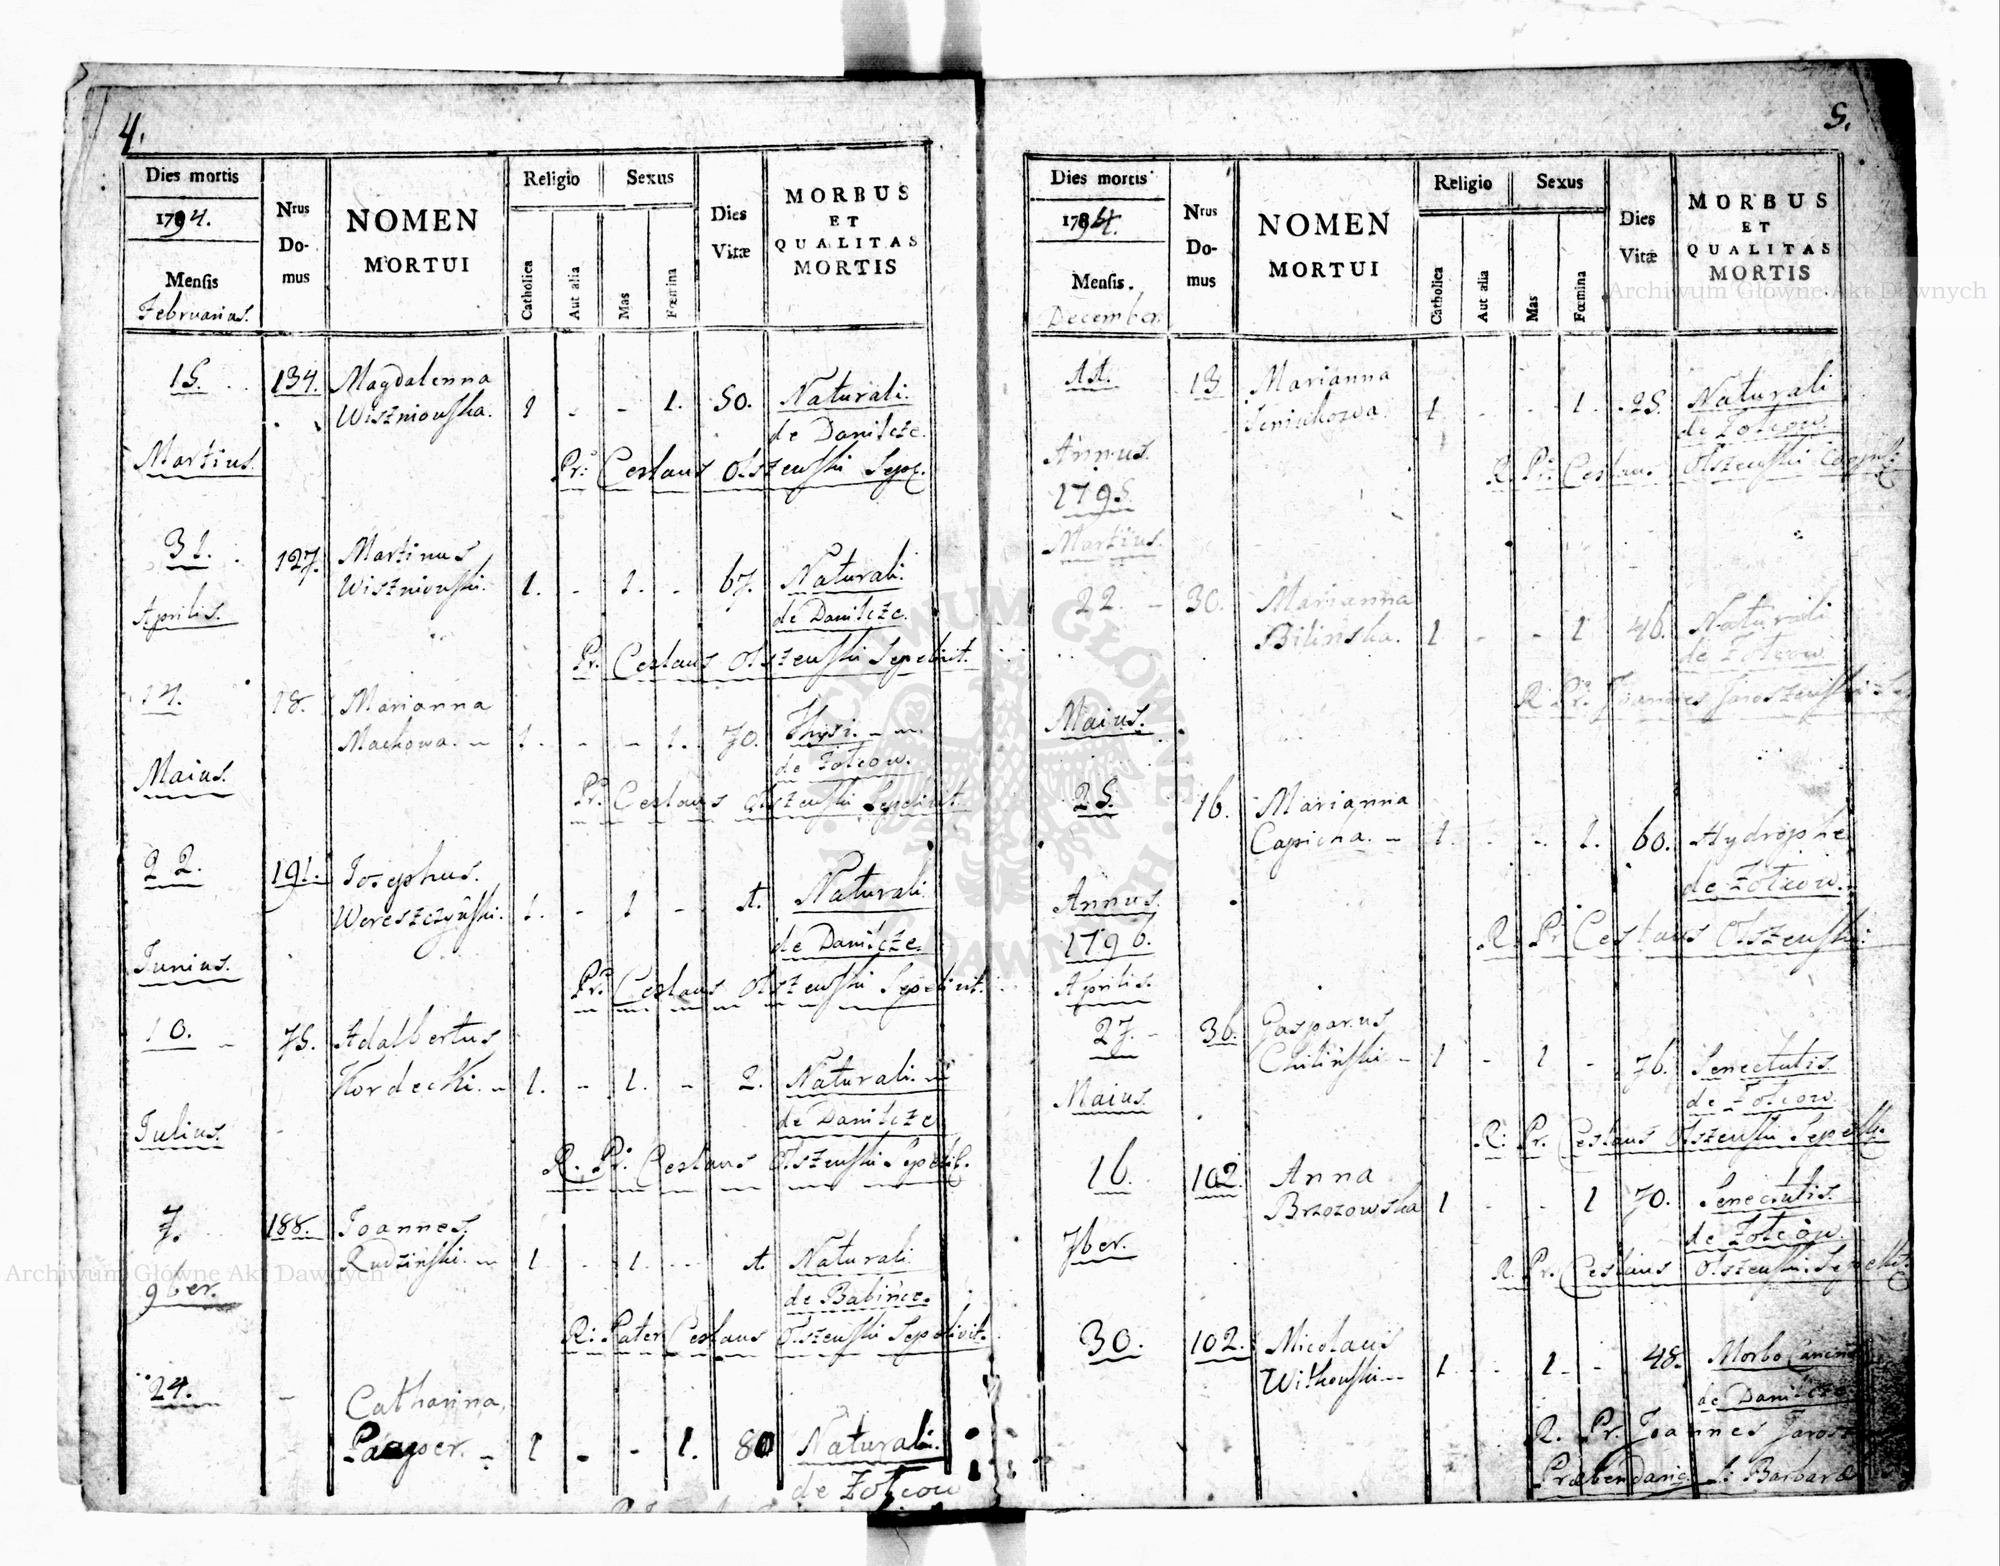 4.
Dies mortis
1794.
Mensis
Februarius.
Nrus
Do-
mus
NOMEN
MORTUI
Religio
Catholica
Aut alia
Sexus
Mas
Fœmina
Dies
Vitæ
MORBUS
ET
QUALITAS
MORTIS
15. 134. Magdalenna
Wiszniouska. 1 - - 1. 50. Naturali.
de Danilcze.
Martius. Pr: Ceslaus Olszeuski Sepel.
31. 127. Martinus
Wiszniouski. 1. - 1. - 67. Naturali.
de Danilcze.
Aprilis.
Pr. Ceslaus Olszeuski Sepelivit.
14. 18. Marianna
Machowa. 1. - - 1. 70.
de Zolcow.
Maius. Pr. Ceslaus Olszeuski Sepelivit.
22. 191. Josephus.
Wereszczyński. 1. - 1 - Naturali
de Danilcze.
Junius. Pr. Ceslaus Olszeuski Sepelivit.
10. 75. Adalbertus
Kordecki. 1. - 1. - 2. Naturali.
de Danilcze
Julius. R. Pr. Ceslaus Olszeuski Sepelit.
7. 188. Joannes
Rudziński. 1 - 1. Naturali
de Babince.
9ber. R: Pater Ceslaus Olszeuski Sepelivit.
24. - Catharina
Pauper. 1 - - 1. 80 Naturali.
de Zolcow
5.
Dies mortis
1794.
Mensis.
December.
Nrus
Do-
mus
NOMEN
MORTUI
Religio
Catholica
Aut alia
Sexus
Mas
Fœmina
Dies
Vitæ
MORBUS
ET
QUALITAS
MORTIS
13 Marianna
1. - - 1. 25. Naturali
de Zolcow.
Annus. R. Pr. Ceslaus Olszeuski
1795.
Martius.
22. - 30. Marianna
Bilińska. 1. - - 1 46. Naturali
de Zolcow.
R. Pr. Joannes Jaroszeuski
Maius.
25. 16. Marianna
1. - - 1. 60.
de Zolcow.
Annus. R. Pr. Ceslaus Olszeuski.
1796.
Aprilis.
27. - 36. Gasparus
Chiliński 1 - 1 - 76. Senectutis.
de Zolcow.
Maius. R: Pr. Ceslaus Olszeuski
16. 102. Anna
Brzozowska 1 - - 1 70. Senectutis.
de Zolcow.
7ber. R. Pr. Ceslaus Olszeuski
30. 102. Nicolaus
Witkouski 1 - 1 - 48. Morbo
de Danilcze.
R. Pr. Joannes
S: Barbara
Archiwum Główne Akt Dawnych
Archiwum Główne Akt Dawnych
ARCHIWUM GŁÓWNE AKT DAWNYCH